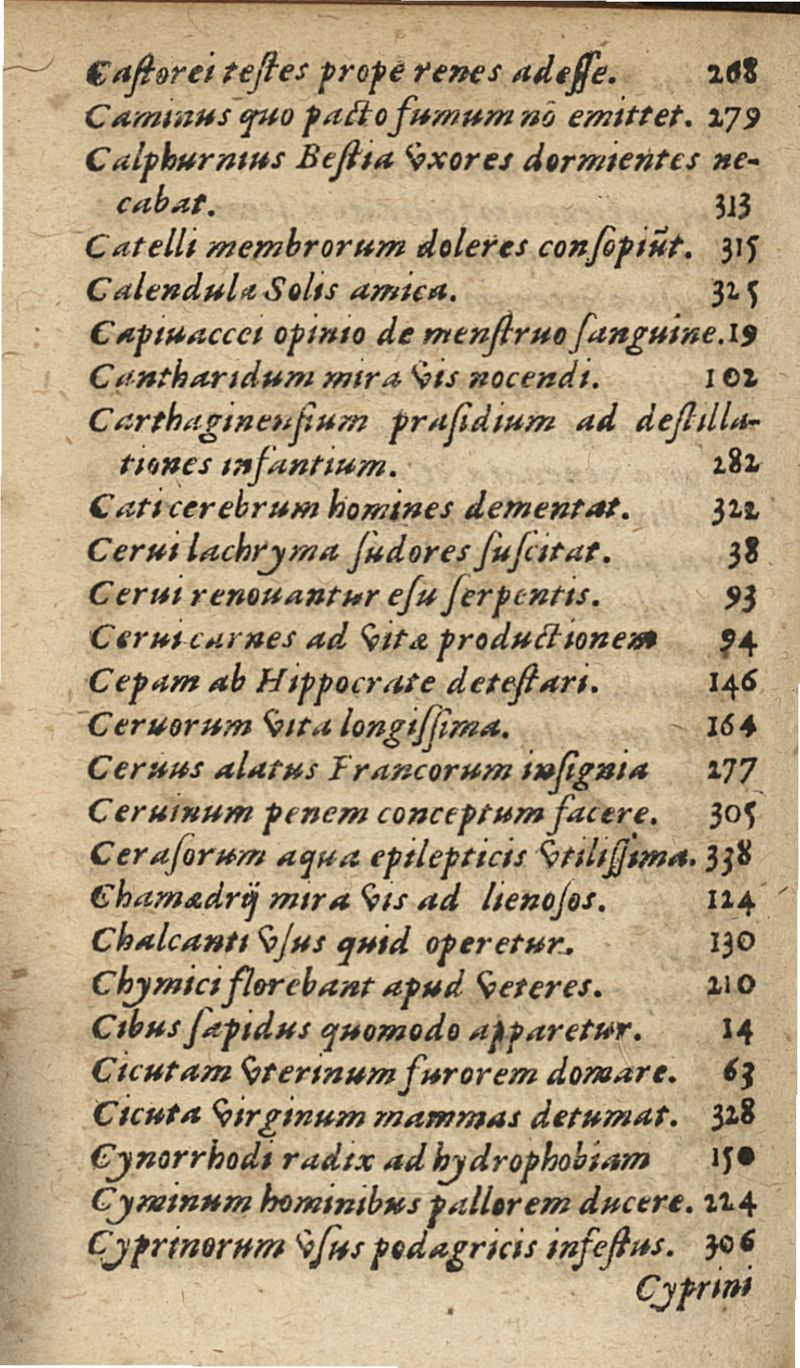 Castorei testes prope renes adesse. 268
Caminus quo pacto fumum nō emittet. 279
Calphurnius Bestia vxores dormientes ne-
cabat. 313
Catelli membrorum doleres consopiūt. 315
Calendulæ Solis amica. 325
Capiuaccei opinio de menstruo sanguine. 19
Cantharidum mira vis nocendi. 102
Carthaginensium præsidium ad destilla-
tiones infantium. 282
Cati cerebrum homines dementat. 322
Cerui lachryma sudores suscitat. 38
Cerui renouantur esu serpentis. 93
Cerui carnes ad vitæ productionem 94
Cepam ab Hippocrate detestari. 146
Ceruorum vita longissima. 164
Ceruus alatus Francorum insignia 277
Ceruinum penem conceptum facere. 305
Cerasorum aqua epilepticis vtilissima. 338
Chamædrij mira vis ad lienosos. 124
Chalcanti vsus quid operetur. 130
Chymici florebant apud veteres. 210
Cibus sapidus quomodo apparetur. 14
Cicutam vterinum furorem domare. 63
Cicuta virginum mammas detumat. 328
Cynorrhodi radix ad hydrophobiam 150
Cyminum hominibus pallorem ducere. 224
Cyprinorum vsus podagricis infestus. 306
Cyprini